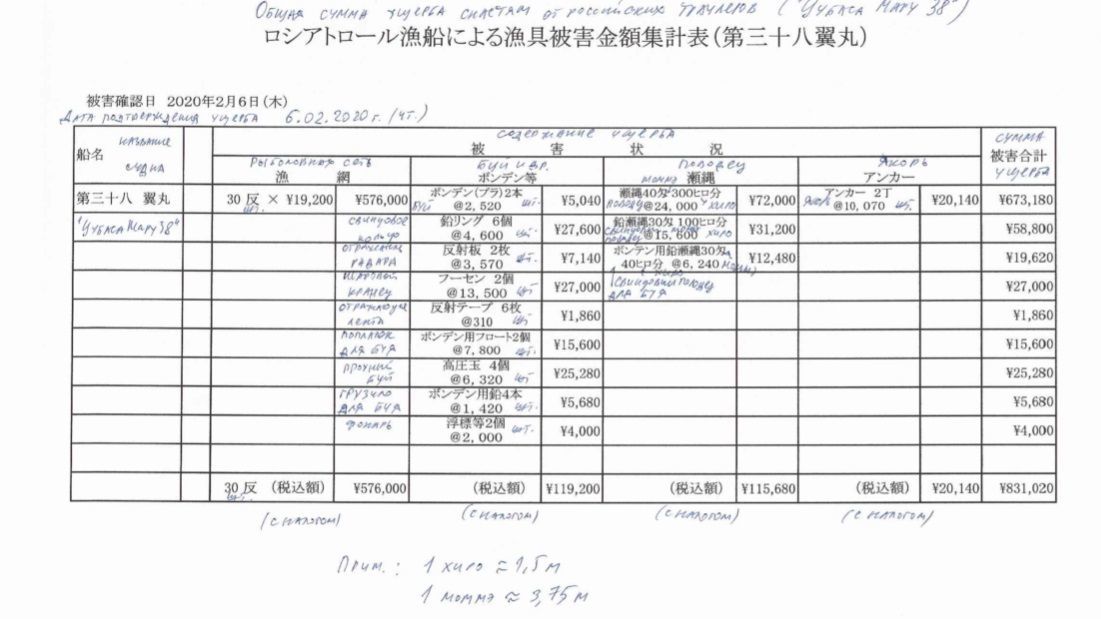 Общая сумма ущерба снастям от российских траулеров ("Цубаса Мару 38")
ロシアトロール漁船による漁具被害金額集計表(第三十八翼丸)
被害確認日 2020年2月6日(木)
Дата подтверждения ущерба 6.02.2020г. (чт.)
船名 название судна
содержение ущерба
被害状況
сумма
被害合計
ущерба
Рыболовная сеть
漁網
Буй и др.
ボンデン等
Поводец
моммэ 瀬縄
Якорь
アンカー
第三十八 翼丸 30反 × ¥19,200 шт. ¥576,000 ボンデン(プラ)2本 буй @2,520 шт. ¥5,040 瀬縄40匁 300ヒロ分 поводец @24,000 хиро ¥72,000 アンカー 2丁 якорь @10,070 шт. ¥20,140 ¥673,180
"Цубаса Мару 38" свинцовое кольцо 鉛リング 6個 @4,600 шт ¥27,600 鉛瀬縄30匁 100ヒロ分 @15,600 хиро ¥31,200 ¥58,800
отражение радара 反射板 2枚 @3,570 шт. ¥7,140 ボンテン用鉛瀬縄30匁 40ヒロ分 @6,240 ¥12,480 ¥19,620
шаровый кранец フーセン 2個 @13,500 шт ¥27,000 свинцовый поводец для буя ¥27,000
отражающая лента 反射テープ 6枚 @310 шт ¥1,860 ¥1,860
поплавок для буя ボンデン用フロート2個 @7,800 шт. ¥15,600 ¥15,600
прочный буй 高圧玉 4個 @6,320 шт ¥25,280 ¥25,280
грузило для буя ボンデン用鉛4本 @1,420 шт. ¥5,680 ¥5,680
фонарь 浮標等2個 шт. @2,000 ¥4,000 ¥4,000
30反 (税込額) шт. ¥576,000 (税込額) ¥119,200 (税込額) ¥115,680 (税込額) ¥20,140 ¥831,020
(с налогом) (с налогом) (с налогом) (с налогом)
Прим.: 1 хиро ≈ 1,5 м
1 моммэ ≈ 3,75 м